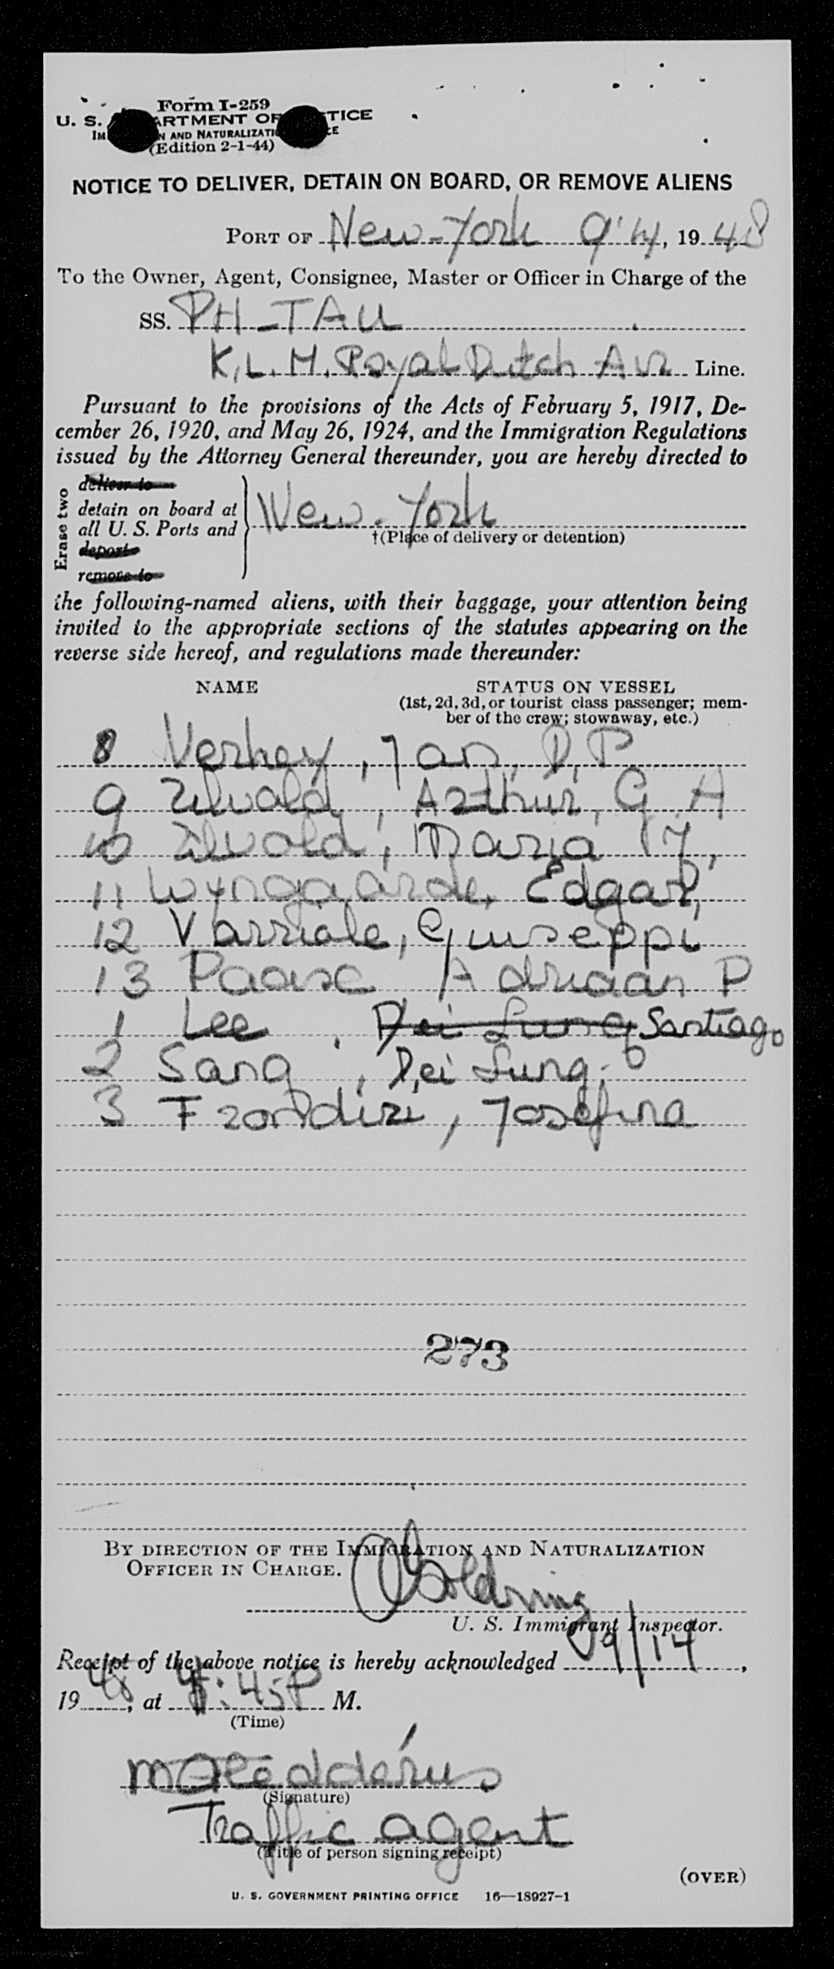 Form I-259
U. S. DEPARTMENT OF JUSTICE
IMMIGRATION AND NATURALIZATION SERVICE
(Edition 2-1-44)
NOTICE TO DELIVER, DETAIN ON BOARD, OR REMOVE ALIENS
PORT OF New-York 9'14, 1948
To the Owner, Agent, Consignee, Master or Officer in Charge of the
SS. PH-TAU
K.L.M. Royal Dutch Air Line.
Pursuant to the provisions of the Acts of February 5, 1917, De-
cember 26, 1920, and May 26, 1924, and the Immigration Regulations
issued by the Attorney General thereunder, you are hereby directed to
Erase two
deliver to
detain on board at
all U. S. Ports and
deport
remove to
New-York
†(Place of delivery or detention)
the following-named aliens, with their baggage, your attention being
invited to the appropriate sections of the statutes appearing on the
reverse side hereof, and regulations made thereunder:
NAME STATUS ON VESSEL
(1st, 2d, 3d, or tourist class passenger; mem-
ber of the crew; stowaway, etc.)
8 Verhey, Jan, D.P
9 Zilvold, Arthur, G A
10 Zilvold, Maria
11 Wyngaarde, Edgar,
12 Varriale, Giuseppi
13 Adriaan P
1 Lee, Dei Lung Santiago
2 Sang, Dei Lung,
3 Josefina
273
BY DIRECTION OF THE IMMIGRATION AND NATURALIZATION
OFFICER IN CHARGE.
Goldring
U. S. Immigrant Inspector.
Receipt of the above notice is hereby acknowledged 9/14,
1948, at :45P M.
(Time)
(Signature)
Traffic agent
(Title of person signing receipt)
(OVER)
U. S. GOVERNMENT PRINTING OFFICE 16—18927-1